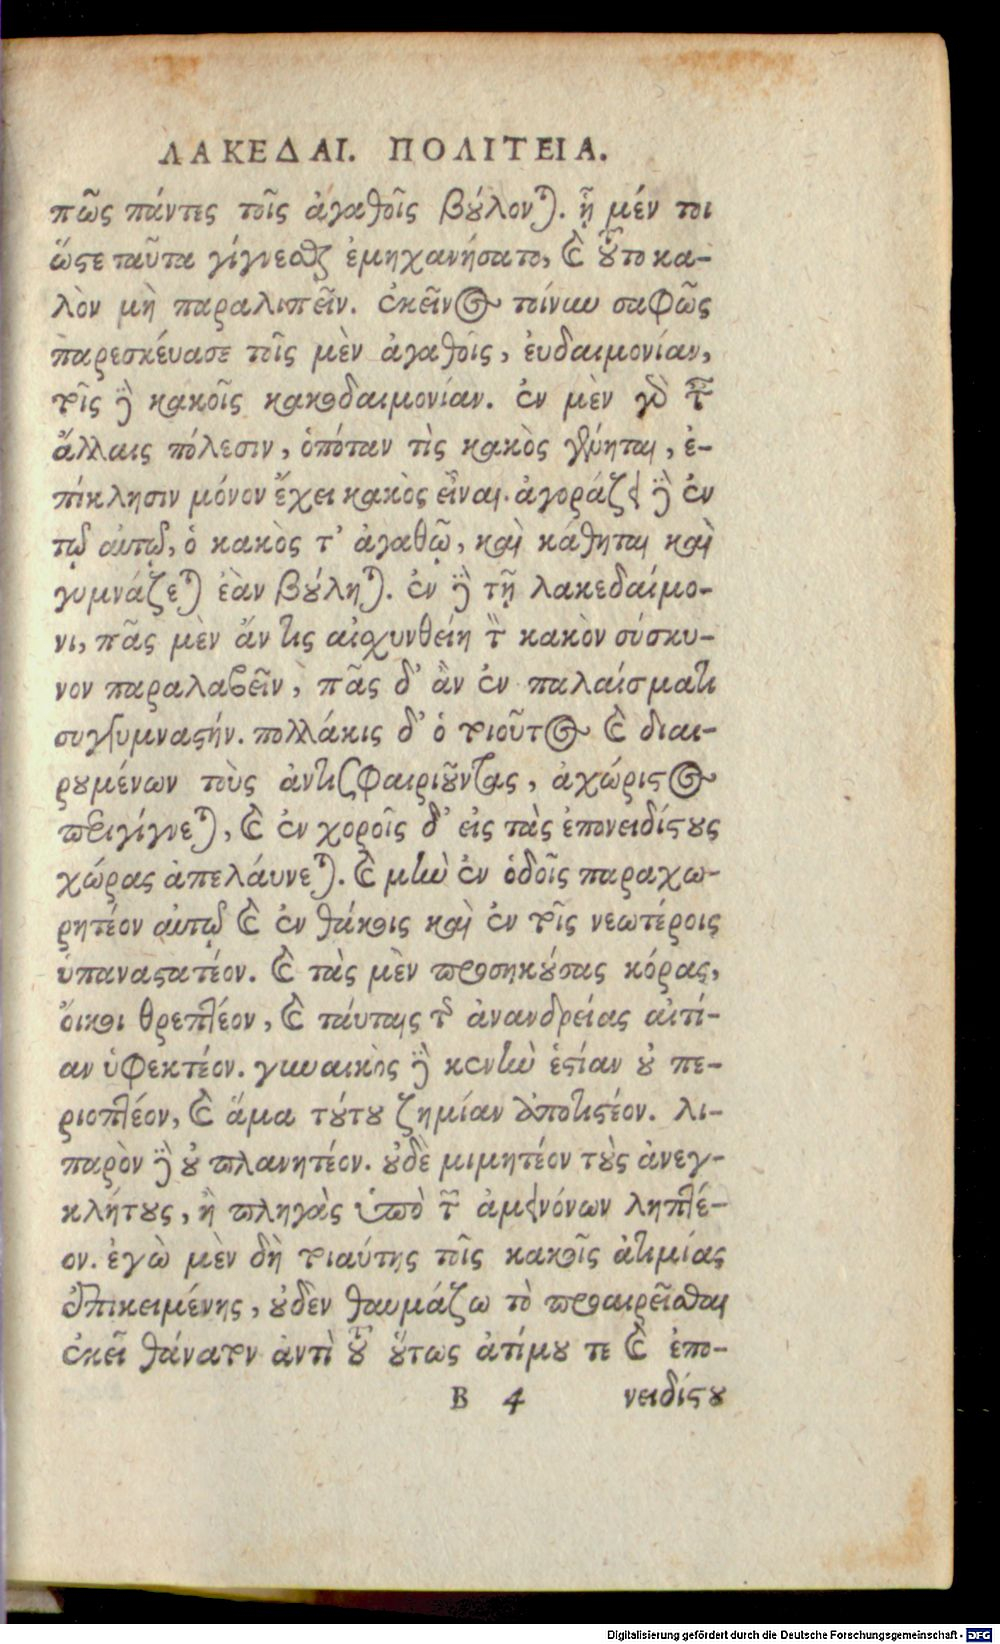 ΛΑΚΕΔΑΙ. ΠΟΛΙΤΕΙΑ.
πῶς πάντες τοῖς ἀγαθοῖς βούλονται. ᾗ μέν τοι
ὥστε ταῦτα γίγνεσθαι ἐμηχανήσατο, καὶ τοῦτο κα-
λὸν μὴ παραλιπεῖν. ἐκεῖνος τοίνυν σαφῶς
παρεσκέυασε τοῖς μὲν ἀγαθοῖς, ἐυδαιμονίαν,
τοῖς δὲ κακοῖς κακοδαιμονίαν. ἐν μὲν γὰρ ταῖς
ἄλλαις πόλεσιν, ὁπόταν τὶς κακὸς γένηται, ἐ-
πίκλησιν μόνον ἔχει κακὸς εἶναι. ἀγοράζει δὲ ἐν
τῷ αὐτῷ, ὁ κακὸς τ' ἀγαθῷ, καὶ κάθηται καὶ
γυμνάζεται ἐὰν βούληται. ἐν δὲ τῇ λακεδαίμο-
νι, πᾶς μὲν ἄν τις αἰσχυνθείη τὸν κακὸν σύσκη-
νον παραλαβεῖν, πᾶς δ' ἂν ἐν παλαίσματι
συγγυμναστήν. πολλάκις δ' ὁ τοιοῦτος καὶ διαι-
ρουμένων τοὺς ἀντισφαιριοῦντας, ἀχώριστος
περιγίγνεται, καὶ ἐν χοροῖς δ' εἰς τὰς ἐπονειδίστους
χώρας ἀπελάυνεται. καὶ μὴν ἐν ὁδοῖς παραχω-
ρητέον αὐτῷ καὶ ἐν θάκοις καὶ ἐν τοῖς νεωτέροις
ὑπαναστατέον. καὶ τὰς μὲν προσηκούσας κόρας,
ὄικοι θρεπτέον, καὶ τάυταις τῆς ἀνανδρείας αἰτί-
αν ὑφεκτέον. γυναικὸς δὲ κενὴν ἑστίαν οὐ πε-
ριοπτέον, καὶ ἅμα τούτου ζημίαν ἀποτιστέον. λι-
παρὸν δὲ οὐ πλανητέον. οὐδὲ μιμητέον τοὺς ἀνεγ-
κλήτους, ἢ πληγὰς ὑπὸ τῶν ἀμεινόνων ληπτέ-
ον. ἐγὼ μὲν δὴ τοιαύτης τοῖς κακοῖς ἀτιμίας
ἐπικειμένης, οὐδεν θαυμάζω τὸ προαιρεῖσθαι
ἐκεῖ θάνατον ἀντὶ τοῦ οὕτως ἀτίμου τε καὶ ἐπο-
B 4 νειδίστου
Digitalisierung gefördert durch die Deutsche Forschungsgemeinschaft - DFG